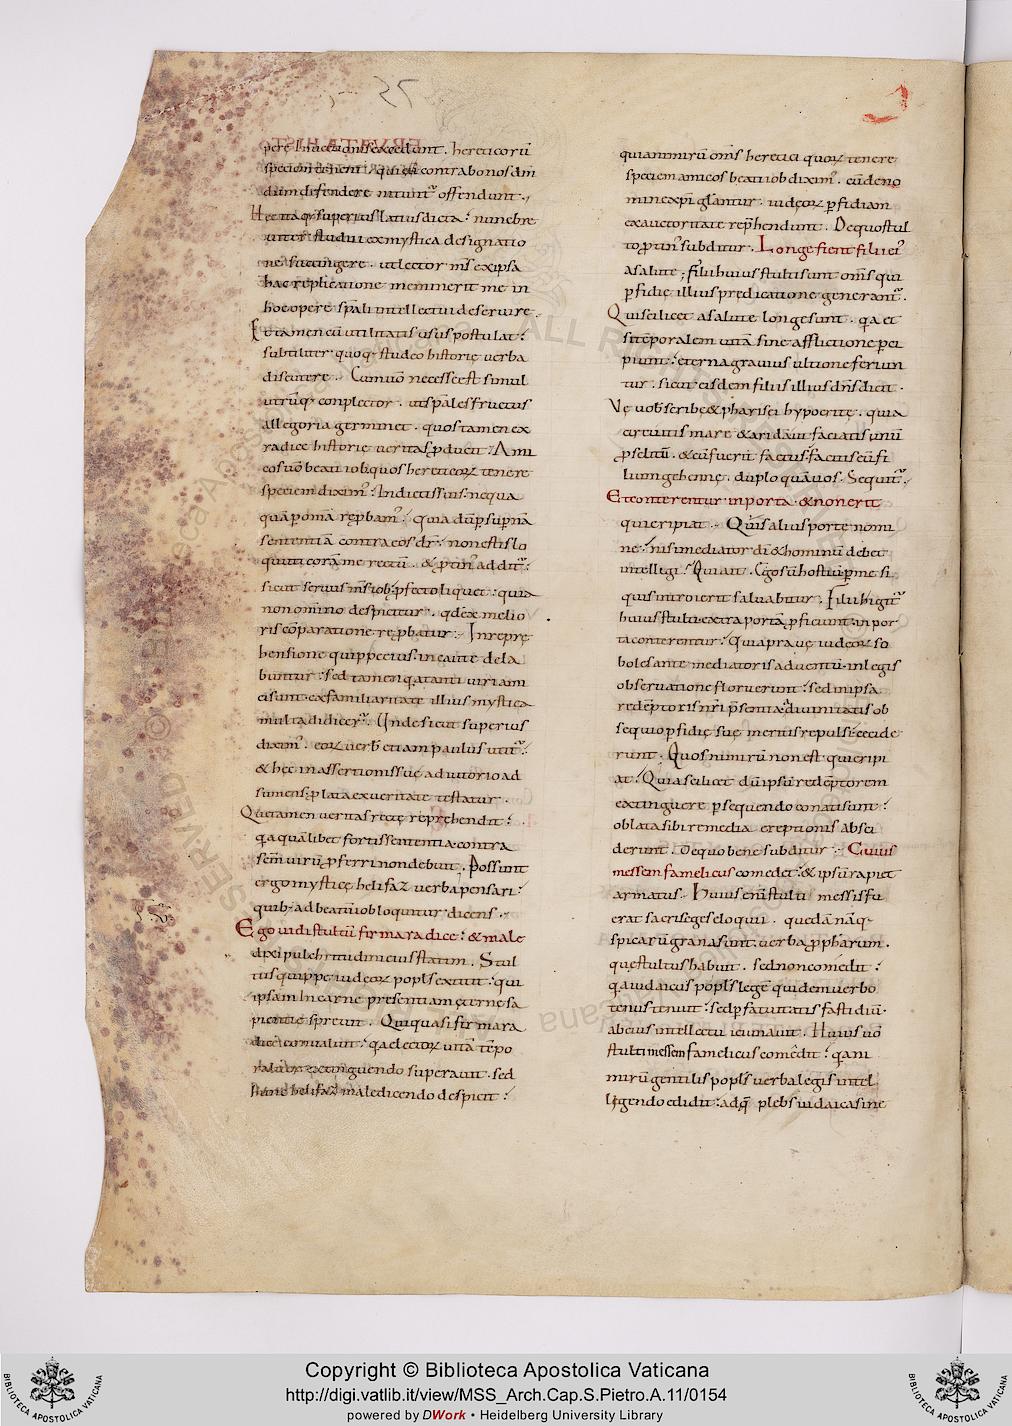 pere Inuectionis excedunt. hereticorū
speciem tenent: qui dū contra bonos dm̄
dum defendere nitunt᷑ offendunt.
Hec itaq; superius latius dicta: nunc bre
uiter studui ex mystica designatio
ne succingere. ut lector m̄s ex ipsa
hac replicatione memmerit me in
hoc opere sp̄ali intellectui deseruire.
Et tamen cū utilitatis usus postulat:
subtiliter quoq; studeo historię uerba
discutere. Cum uō necesse est simul
utrūq; conplector. ut sp̄ales fructus
allegoria germinet. quos tamen ex
radice historię ueritas ꝓducit. Ami
cos uō beati iob quos hereticoꝝ tenere
speciem diximꝰ: In dictis suis nequa
quā p om̄a rep̄bamꝰ: quia dū p sup̄na
sententiā contra eos dr̄: non estis lo
cuti corā me rectū. & ꝓtinꝰ addit᷑:
sicut seruus m̄s iob; ꝓfecto liquet: quia
non omnino despicitur. qđ ex melio
ris cōparatione reꝓbatur. In reprę
hensione quippe eius incaute dela
buntur: sed tamen q̄a tanti uiri ami
ci sunt: ex familiaritate illius mystica
multa didicer̄. Unde sicut superius
diximꝰ. eoꝝ uerb̄ etiam paulus utit᷑:
& hec in assertionis suę adiutorio ad
sumens: ꝓlata ex ueritate testatur.
Quę tamen ueritas recte reprehendit:
q̄a quālibet fortis sententia contra
sc̄m uirū ꝓferri non debuit. Possunt
ergo mystice helifaz uerba pensari:
quib; ad beatū iob loquitur dicens.
Ego uidi stultū firma radice: & male
dixi pulchritudini eius statim. Stul
tus quippe iudeoꝝ popl̄s extitit: qui
ipsam in carne presentiam ęternę sa
pientię spreuit. Qui quasi firma ra
dice conualuit: q̄a electoꝝ uitā tēpo
raliter extinguendo superauit. sed
hunc helifaz maledicendo despicit:
quia nimirū om̄s heretici quoꝝ tenere
speciem amicos beati iob diximꝰ. cū de no
mine xp̄i gl̄antur. iudeoꝝ ꝑfidiam
ex auctoritate rep̄hendunt. De quo stul
to ꝓtinꝰ subditur. Longe fient filii eiꝰ
a salute; filii huius stulti sunt om̄s qui
ꝑfidię illius predicatione generant᷑.
Qui scilicet a salute longe sunt. q̄a et
si tēporalem uitā sine afflictione perci
piunt: ęterna grauius ultione feriun
tur. sicut eisdem filiis illius dn̄s dicit.
Vę uob̄ scribę & pharisęi hypocritę. quia
circuitis mare & aridā ut faciatis unū
ꝓselitū. & cū fuerit factus: facitis eū fi
lium gehennę. duplo quā uos. Sequit᷑.
Et conterentur in porta. & non erit
qui eripiat. Quis alius portę nomi
ne: nisi mediator dī & hominū debet
intellegi. Qui ait. Ego sū hostiū: p me si
quis introierit saluabitur. Filii higit᷑
huius stulti extra portā ꝓficiunt: in por
ta conterentur: quia prauę iudeoꝝ so
boles ante mediatoris aduentū: in legis
obseruatione floruerunt: sed in ipsa
redēptoris nr̄i p̄sentia: a diuinitatis ob
sequio ꝑfidię suę meritis repulsi: cecide
runt. Quos nimirū non est qui eripi
at: Quia scilicet dū ipsū redēptorem
extinguere ꝑsequendo conati sunt:
oblata sibi remedia ereptionis absci
derunt. De quo bene subditur. Cuius
messem famelicus comedet: & ipsū rapiet
armatus. Huius enī stulti messis fu
erat sacri seges eloquii. quędā nāq;
spicarū grana sunt. uerba ꝓpharum.
que stultus habuit. sed non comedit:
q̄a iudaicus popl̄s legē quidem uerbo
tenus tenuit: sed ꝑ fatuitatis fastidiū.
ab eius intellectu ieiunauit. Huius uō
stulti messem famelicus comedit: q̄a ni
mirū gentilis popl̄s uerba legis intel
ligendo edidit: ad q̄ plebs iudaica sine
Copyright © Biblioteca Apostolica Vaticana
http://digi.vatlib.it/view/MSS_Arch.Cap.S.Pietro.A.11/0154
powered by DWork • Heidelberg University Library